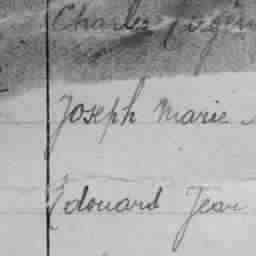 Charles Eugène
Joseph Marie
Edouard Jean